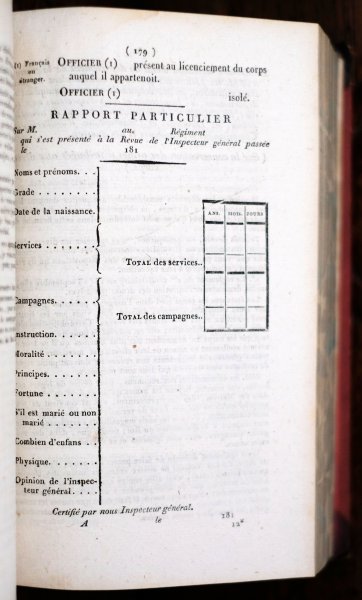 ( 179 )
(1) Français
ou
étranger.
OFFICIER (1) présent au licenciement du corps
auquel il appartenoit.
OFFICIER (1) isolé.
RAPPORT PARTICULIER
Sur M. au. Régiment
qui s'est présenté à la Revue de l'Inspecteur général passée
le 181
Noms et prénoms. . .
Grade . . . . . . . .
Date de la naissance.
ANS. MOIS. JOURS
Services . . . . . . .
TOTAL des services..
Campagnes. . . . . .
TOTAL des campagnes..
Instruction. . . . . .
Moralité . . . . . . .
Principes. . . . . . .
Fortune . . . . . . .
S'il est marié ou non
marié . . . . . . .
Combien d'enfans . . .
Physique. . . . . . .
Opinion de l'inspec-
teur général . . . .
Certifié par nous Inspecteur général.
A le 181
12*